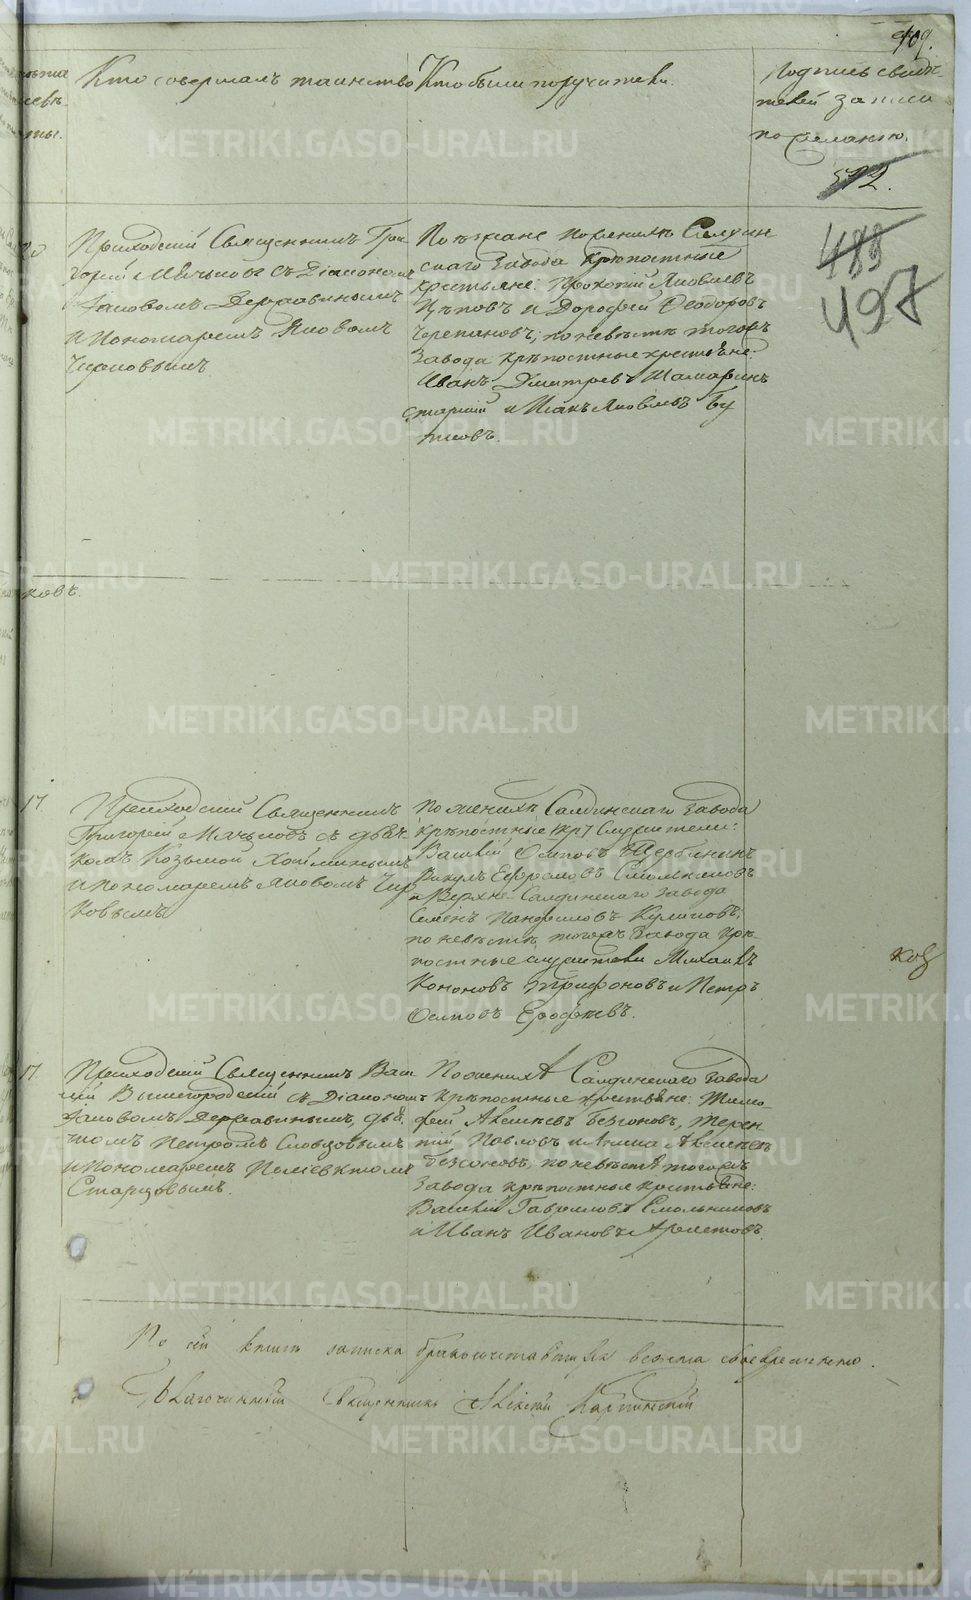 409.
Кто совершалъ таинство
Кто были поручители.
Подпись свидѣ-
телей записи
по желанію.
512.
489
497
Приходскій Священникъ Гри-
горій Мячковъ съ Діакономъ
Іаковомъ Державинымъ
и Пономаремъ Яковомъ
Чирковымъ.
По женихѣ Салдин
скаго Завода крѣпостные
крестьяне: Прокопій Яковлевъ
и Дорофей Ѳеодоровъ
Черепановъ; по невѣстѣ тогожъ
Завода крѣпостные крестьяне:
Иванъ Дмитревъ Шамаринъ
старшій и Исакъ Яковлевъ Бу
ковъ.
17
Приходскій Священникъ
Григорій Мячковъ съ дьяч-
комъ Козьмой Хойминымъ
и пономаремъ Яковомъ Чир
ковымъ
По женихѣ Салдинскаго Завода
крѣпостные служители:
Василій Осиповъ Щербининъ
Викулъ Ефремовъ Смольниковъ
и Верхне-Салдинскаго завода
Семенъ Панфиловъ Куликовъ;
по невѣстѣ тогожъ Завода крѣ-
постные служители Михаилъ
Кононовъ Трифоновъ и Петръ
Осиповъ Ерофѣевъ.
ков
17.
Приходскій Священникъ Васи
лій Вышегородскій съ Діакономъ
Іаковомъ Державинымъ, дьяч
комъ Петромъ Словцовымъ
и пономаремъ Поліевктомъ
Старцовымъ.
По женихѣ Салдинскаго Завода
крѣпостные крестьяне: Тимо-
фей Алексѣевъ Безсоновъ, Терен-
тій Павловъ и Алексѣевъ
Безсоновъ, по невѣстѣ тогожъ
Завода крѣпостные крестьяне:
Василій Гавриловъ Смольниковъ
и Иванъ Ивановъ
По сей книгѣ записка бракосочетавшихся ведена своевременно.
Благочинный Священникъ Алексій Карпинскій
METRIKI.GASO-URAL.RU